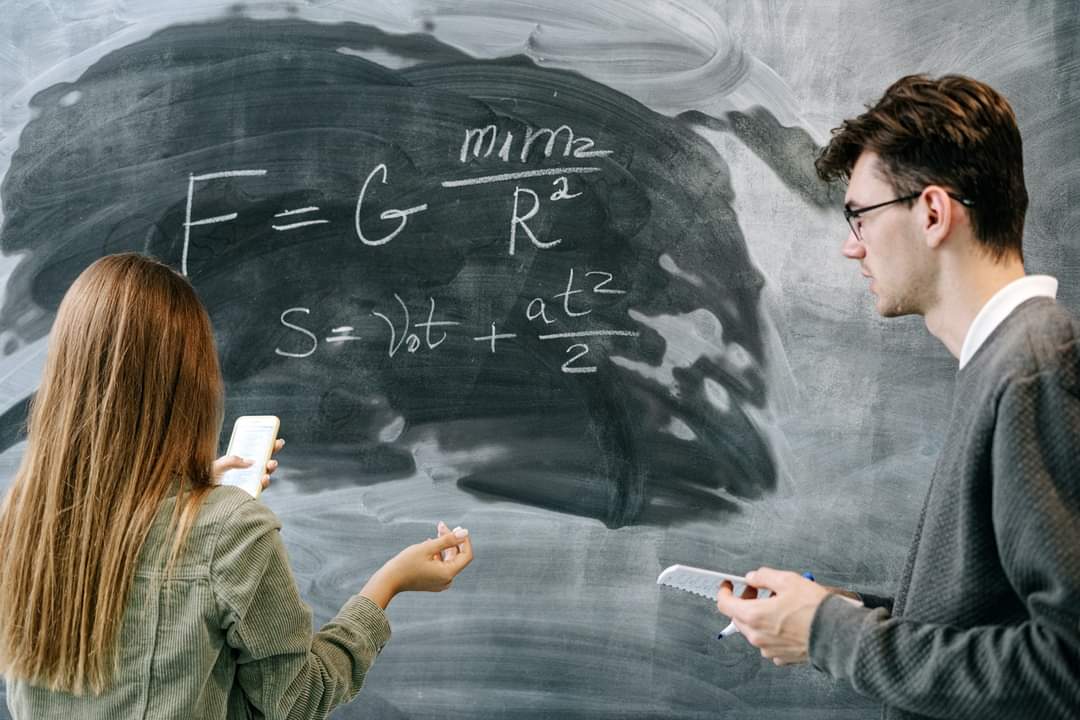 F = G m₁m₂/R²
S = V₀t + at²/2